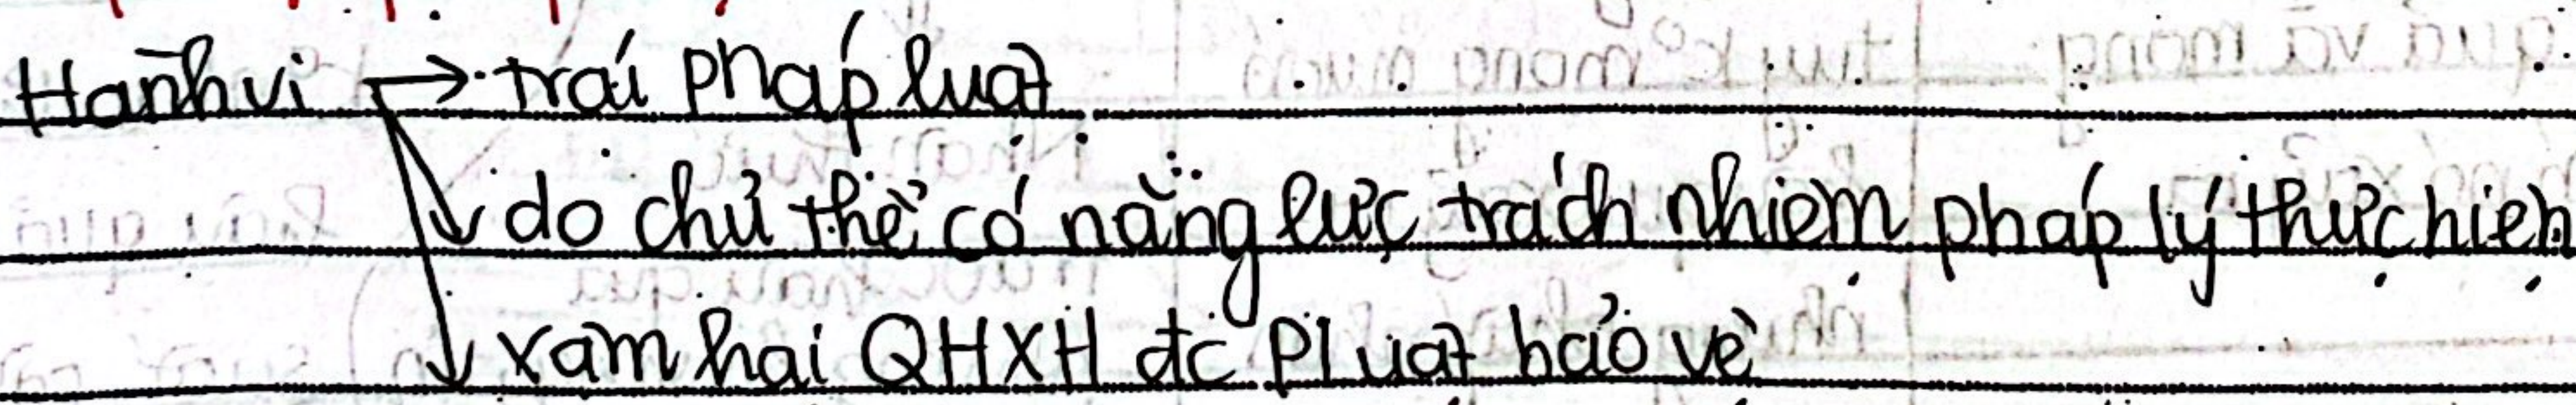 Hành vi → trái pháp luật
do chủ thể có năng lực trách nhiệm pháp lý thực hiện
xâm hại QHXH đc pluật bảo vệ